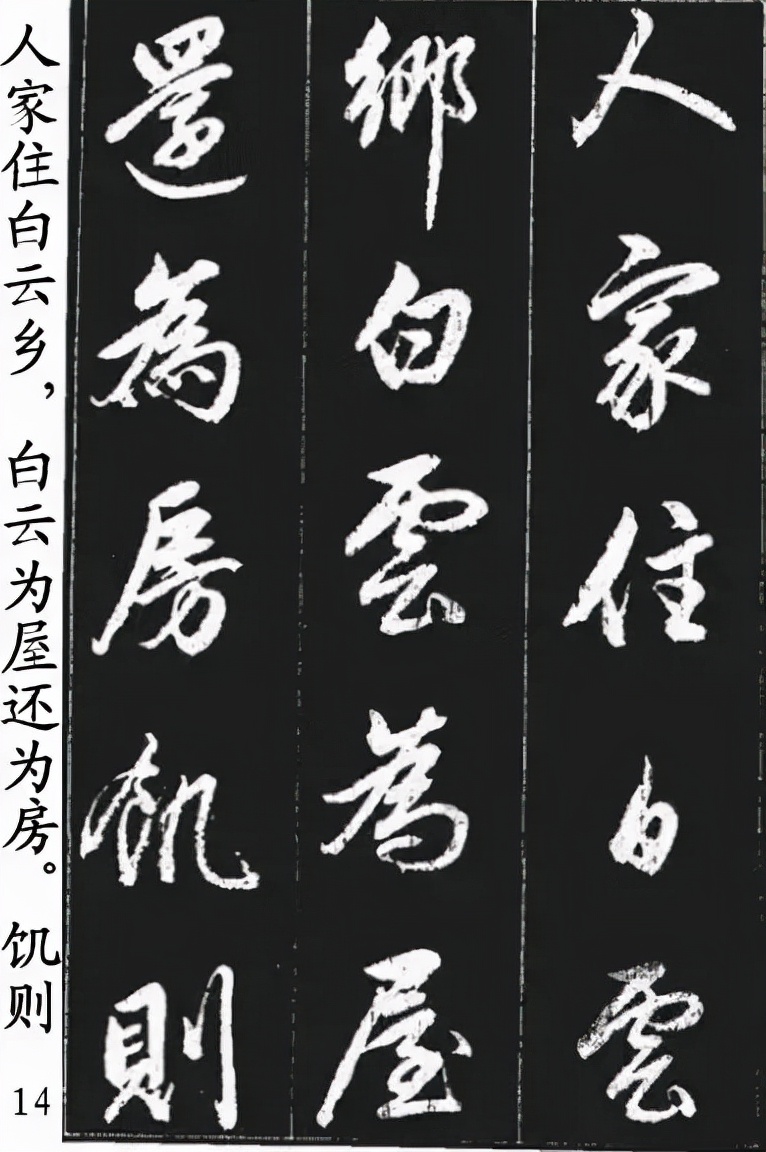 人家住白雲
鄉白雲為屋
還為房飢則
人家住白云乡，白云为屋还为房。饥则
14